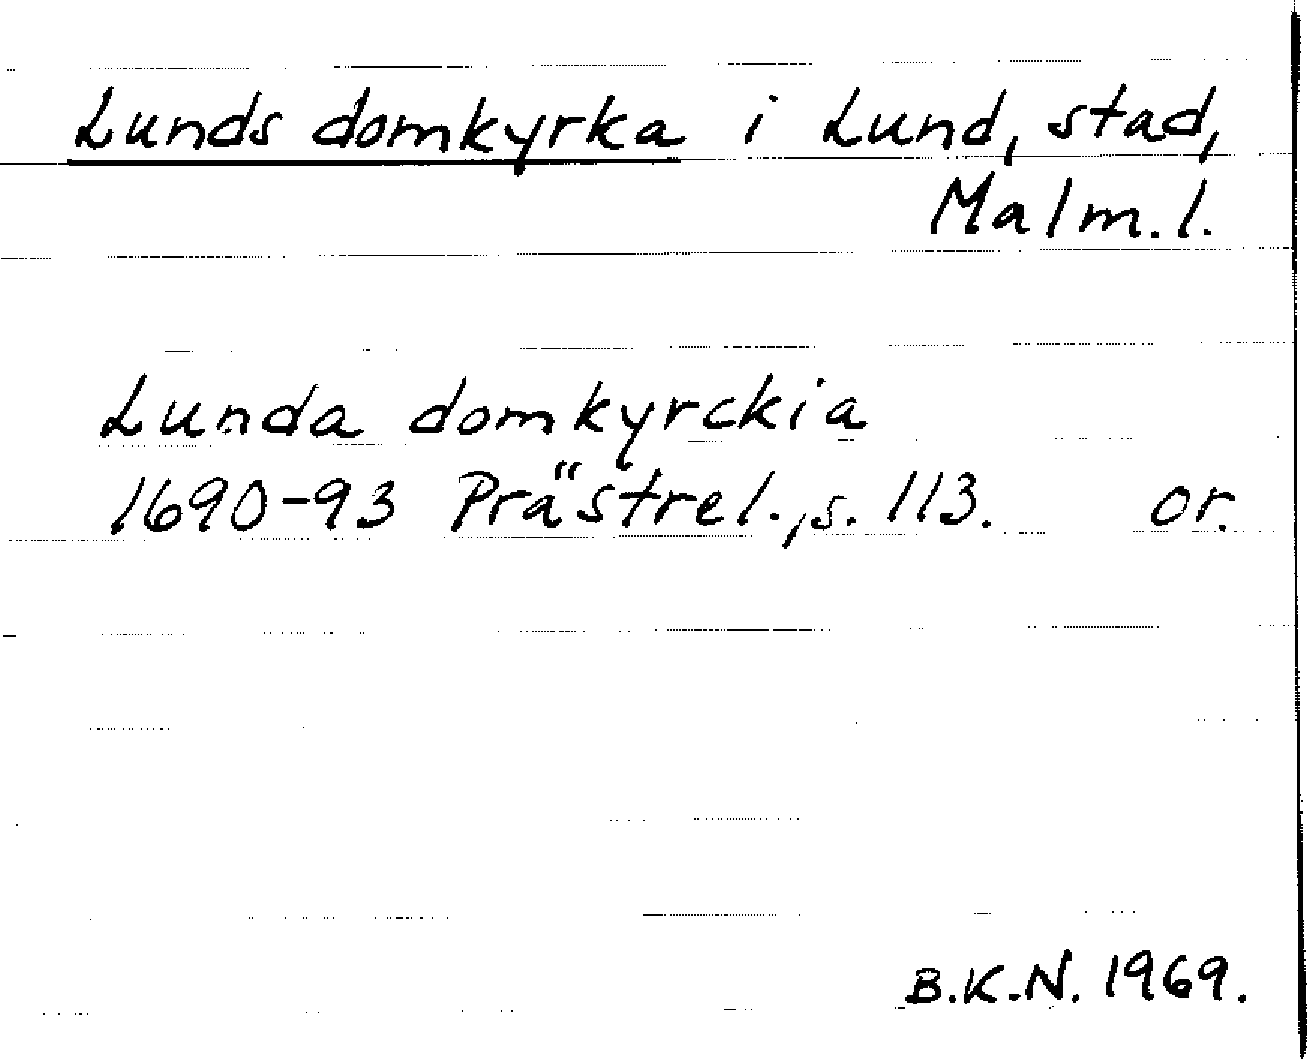 Lunds domkyrka i Lund, stad,
Malm.l.
Lunda domkyrckia
1690-93 Prästrel., s. 113. or.
B.K.N. 1969.